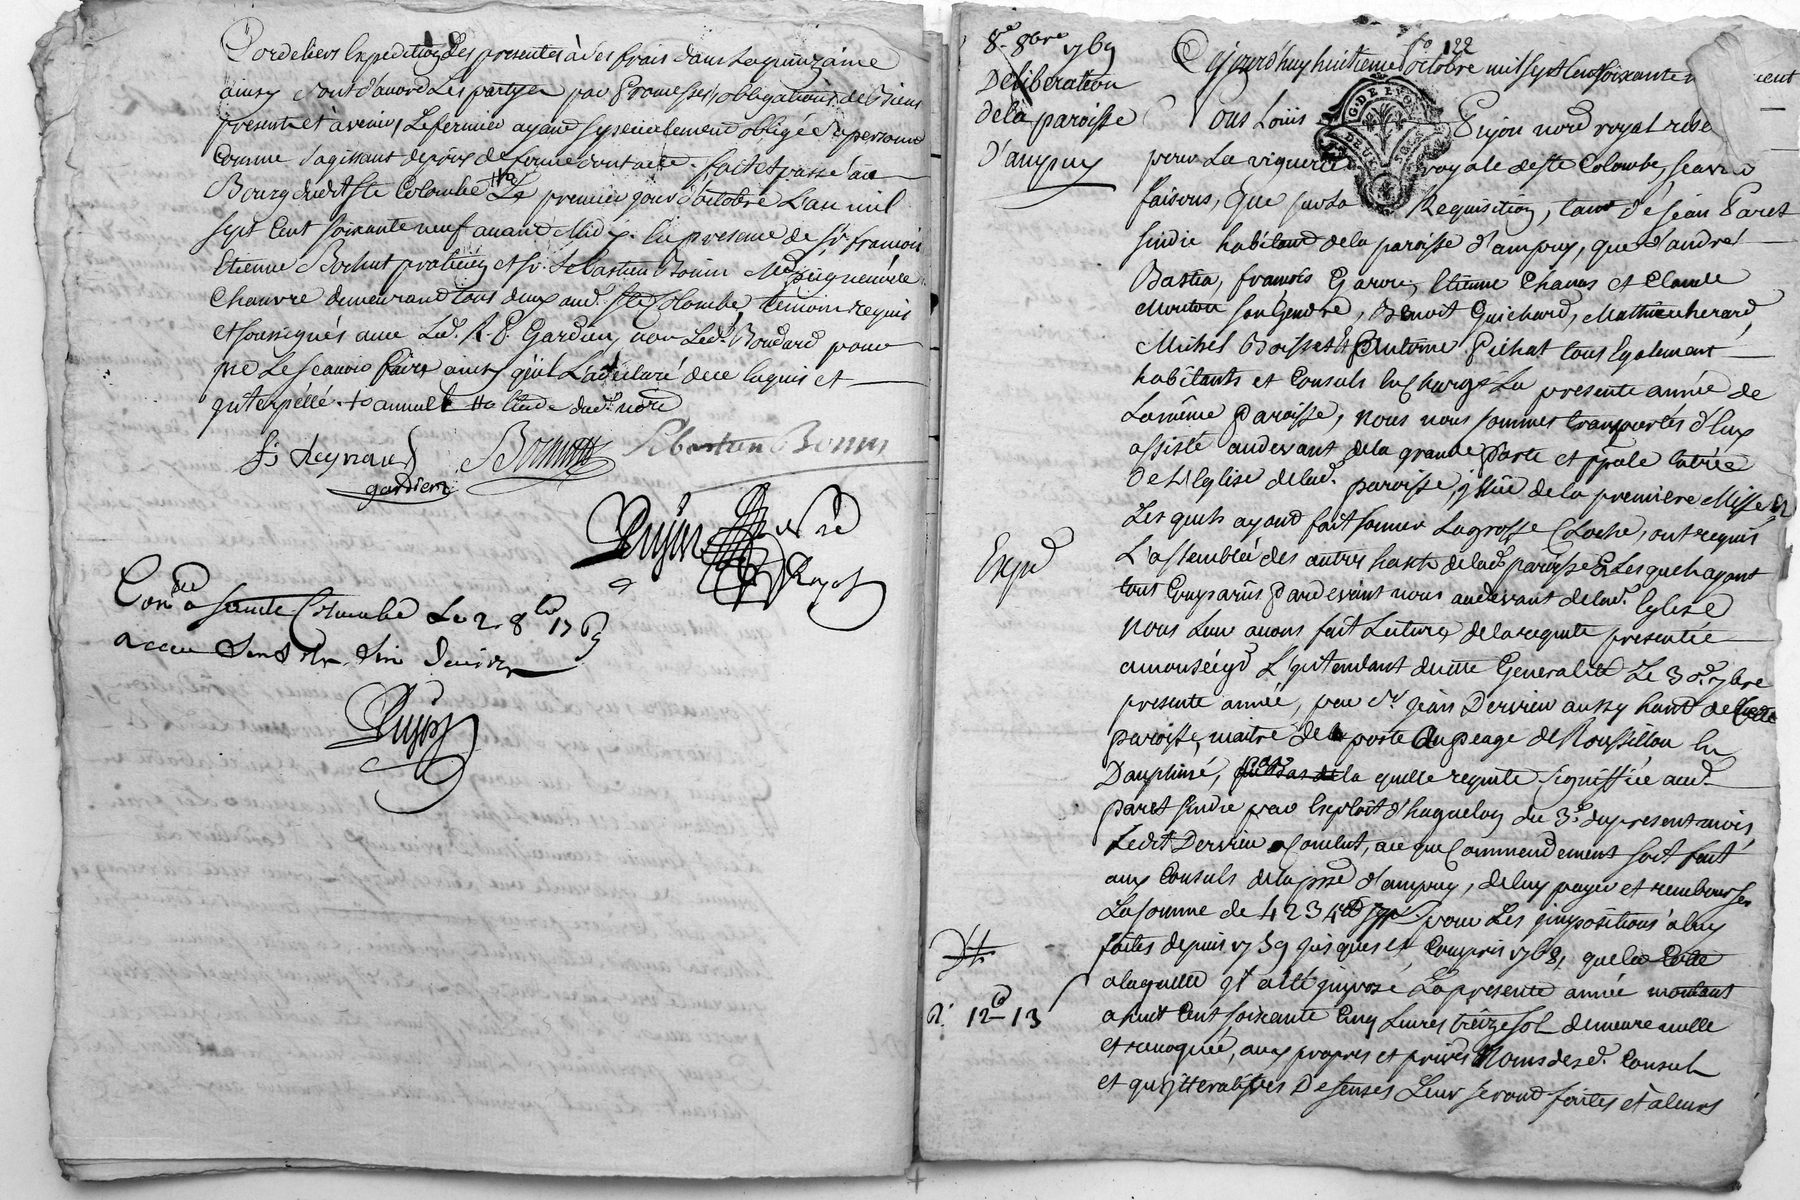 Cordeliers Expedition des presentes à ses frais dans la quinzaine
ainsy sont d'accord Les partyes par Promesses, obligations de Biens
presents et à venir, Le fermier ayant specialement obligé sa personne
comme s'agissant de prix de ferme dont acte. fait et passé au
Bourg dudit Ste Colombe Le premier jour d'octobre L'an mil
sept Cent soixante neuf avant Midy. En presence de Sr. francois
Etienne Bochut praticien et Sr. Sebastien Bonin Md peigneur de
Chanvre demeurant tous deux aud. Ste Colombe, temoins requis
et soussignés avec Led. R. P. Gardien, non Led. Boudard pour
ne Le scavoir faire ainsy qu'il L'a déclaré de ce Enquis et
interpellé. annullé
f. Reynaud Sebastien Bonin
gardien
Pujon
Con.lé a sainte Colombe Le 2. 8bre 1769
Pujon
8e. 8bre 1769
Deliberation
de la paroisse
D'ampuy
fo. 122
G. DE LYON
DEUX SOLS
Cejourd'huy huitieme octobre mil sept Cent soixante
Nous Louis Pujon nore. royal
pour La viguerie royale de Ste Colombe, scavoir
faisons, Que sur la Requisition, tant de Jean Paret
sindic habitant de la paroisse d'ampuy, que d'andré
Bastia, francois Garon, Etienne Chanas et Claude
Mouton son Gendre, Benoit Guichard, Mathieu herard,
Michel Boisset et Antoine Pichat tous Egalement
habitants et Consuls En Charge La presente année de
La même Paroisse, nous nous sommes transportés d'Eux
assisté audevant de la grande Porte et pple Entrée
De L'Eglise de lad. paroisse, issüe de la premiere Messe
Les quels ayant fait sonner La grosse Cloche, ont requis
Expd
L'assemblée des autres habts. de lad. paroisse Lesquels ayant
tous Comparus Pardevant nous audevant de lad. Eglise
nous Leur avons fait Lecture de la requete presentée
a monseigr. L'intendant de cette Generalité Le 30. 7bre
presente année, par Sr. Jean Dervieu aussy habt. de
paroisse, maitre de la poste du peage de Roussillon En
Dauphiné, la quelle requete signiffiée aud.
paret sindic par Exploit d'huguelon du 3e. du present mois,
Ledit Dervieu Conclut, ace que Commendement soit fait
aux Consuls de la psse d'ampuy, de luy payer et rembourser
La somme de 4234 pour Les impositions a luy
faites depuis 1759 jusques et Compris 1768, que la Cotte
a laquelle il a été imposé La presente année montant
12 13
a huit Cent soixante Cinq Livres treize sols demeure nulle
et revoquée, aux propres et privés Noms desd. Consuls
et qu'itteratives Defenses Leur seront faites et à leurs